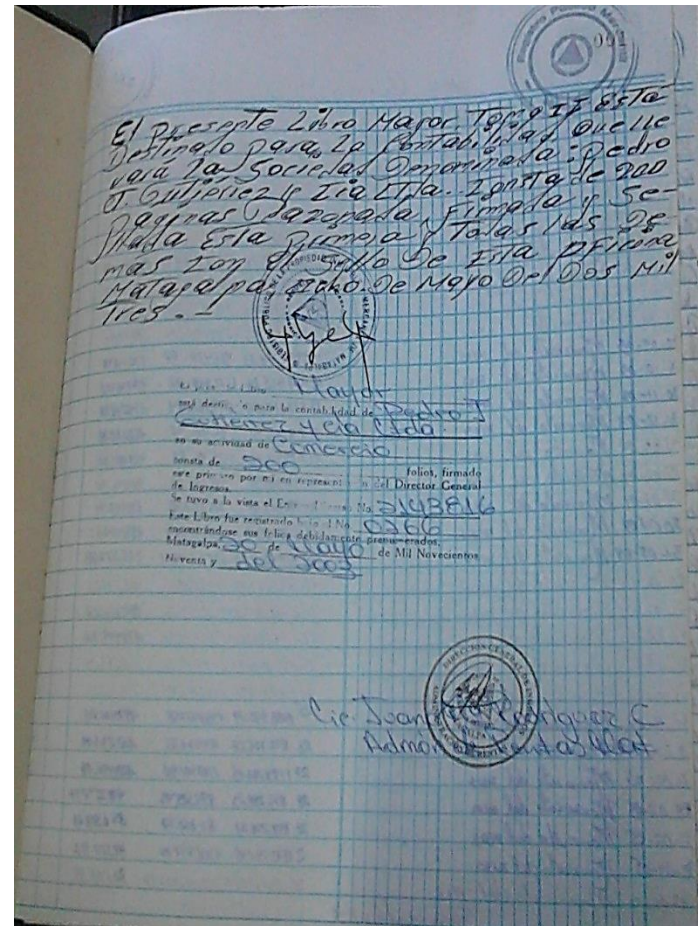 Registro Publico Mercantil
001
El Presente Libro Mayor Tomo II Esta
Destinado Para La Contabilidad Que lle
vará La Sociedad Denominada: Pedro
J. Gutiérrez y Cia Ltda. Consta de 200
Paginas Fazonada, Firmada y Se-
llada Esta Primera y Todas las De
mas Con El Sello De Esta Oficina
Matagalpa Ocho De Mayo Del Dos Mil
Tres. -
Libro Mayor
está destinado para la contabilidad de Pedro J
Gutierrez y Cia Ltda
en su actividad de Comercio
consta de 200 folios, firmado
este primero por mi en representación del Director General
de Ingresos.
Se tuvo a la vista el No. 2143816
Este Libro fue registrado bajo el No. 0266
encontrándose sus folios debidamente prenumerados.
Matagalpa, 20 de Mayo de Mil Novecientos
Noventa y del 2003
DIRECCION GENERAL DE INGRESOS
Lic. Juan Rodriguez C
Admón Rentas Mat